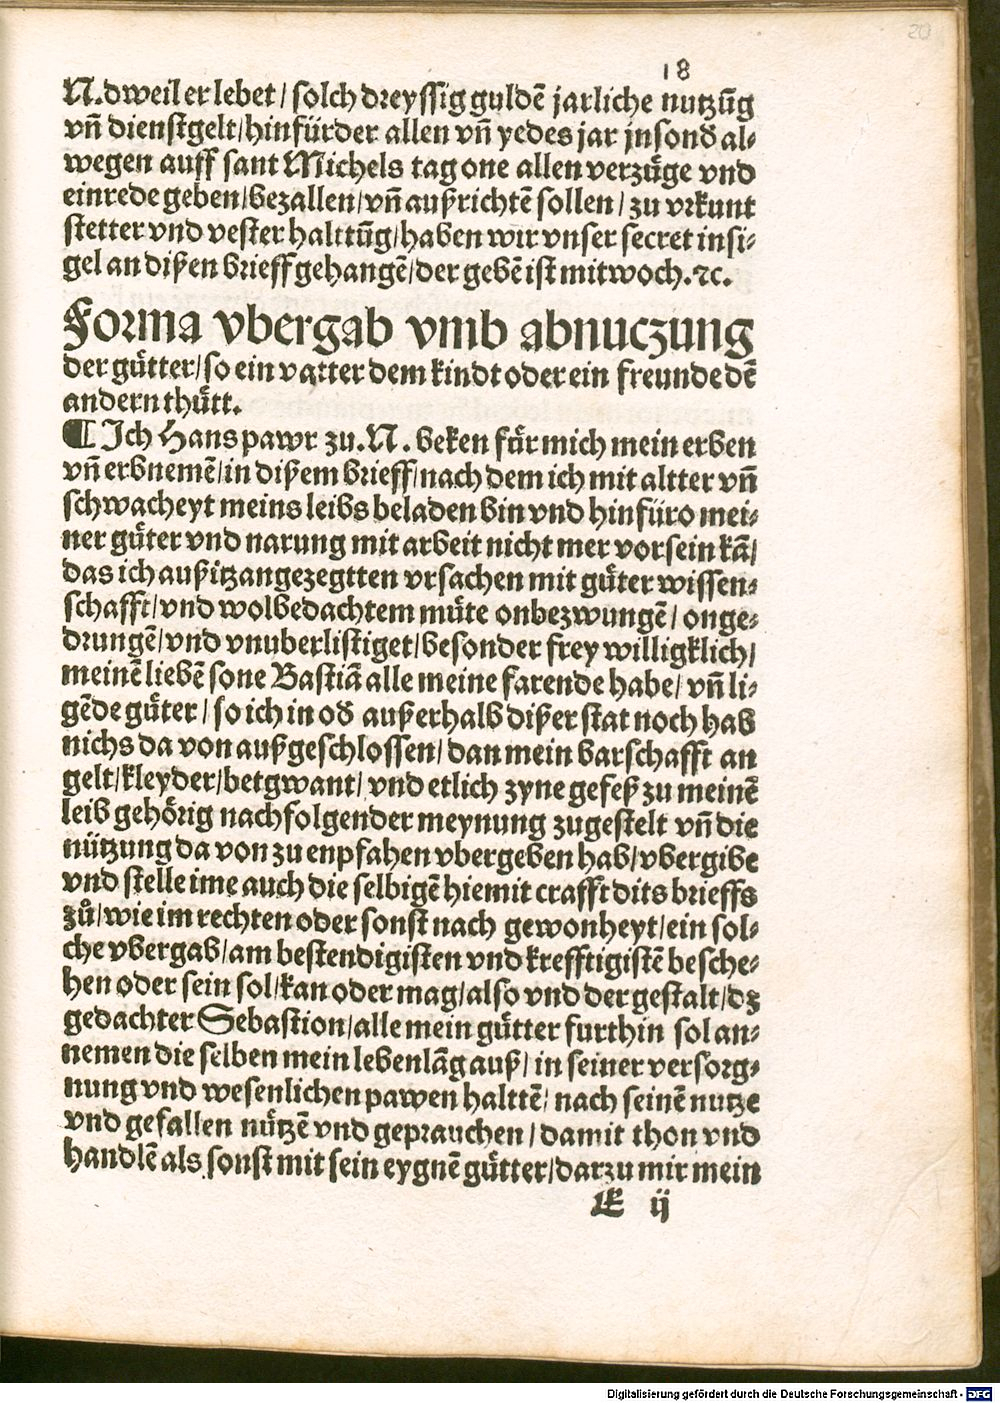 20
18
N. dweil er lebet / solch dreyssig guldē jarliche nutzūg
vñ dienstgelt / hinfürder allen vñ yedes jar jnsond̄ al⸗
wegen auff sant Michels tag one allen verzuͤge vnd
einrede geben / bezallen / vñ außrichtē sollen / zu vrkunt
stetter vnd vester halttūg / haben wir vnser secret insi⸗
gel an dißen brieff gehangē / der gebē ist mitwoch. ⁊c.
Forma vbergab vmb abnuczung
der guͤtter / so ein vatter dem kindt oder ein freunde dē
andern thuͤtt.
¶ Ich Hans pawr zu. N. beken fuͤr mich mein erben
vñ erbnemē / in dißem brieff / nach dem ich mit altter vñ
schwacheyt meins leibs beladen bin vnd hinfüro mei⸗
ner guͤter vnd narung mit arbeit nicht mer vorsein kā /
das ich auß itz angezegtten vrsachen mit guͤter wissen⸗
schafft / vnd wolbedachtem muͤte onbezwungē / onge⸗
drungē / vnd vnuberlistiget / besonder frey willigklich /
meinē liebē sone Bastiā alle meine farende habe / vñ li⸗
gēde guͤter / so ich in od̄ außerhalb dißer stat noch hab
nichs da von außgeschlossen / dan mein barschafft an
gelt / kleyder / betgwant / vnd etlich zyne gefeß zu meinē
leib gehoͤrig nachfolgender meynung zugestelt vñ die
nützung da von zu enpfahen vbergeben hab / vbergibe
vnd stelle ime auch die selbigē hiemit crafft dits brieffs
zů / wie im rechten oder sonst nach gewonheyt / ein sol⸗
che vbergab / am bestendigisten vnd krefftigistē besche⸗
hen oder sein sol / kan oder mag / also vnd der gestalt / dz
gedachter Sebastion / alle mein guͤtter furthin sol an⸗
nemen die selben mein lebenlāg auß / in seiner versorg⸗
nung vnd wesenlichen pawen halttē / nach seinē nutze
vnd gefallen nuͤtzē vnd geprauchen / damit thon vnd
handlē als sonst mit sein eygnē guͤtter / darzu mir mein
E ij
Digitalisierung gefördert durch die Deutsche Forschungsgemeinschaft - DFG